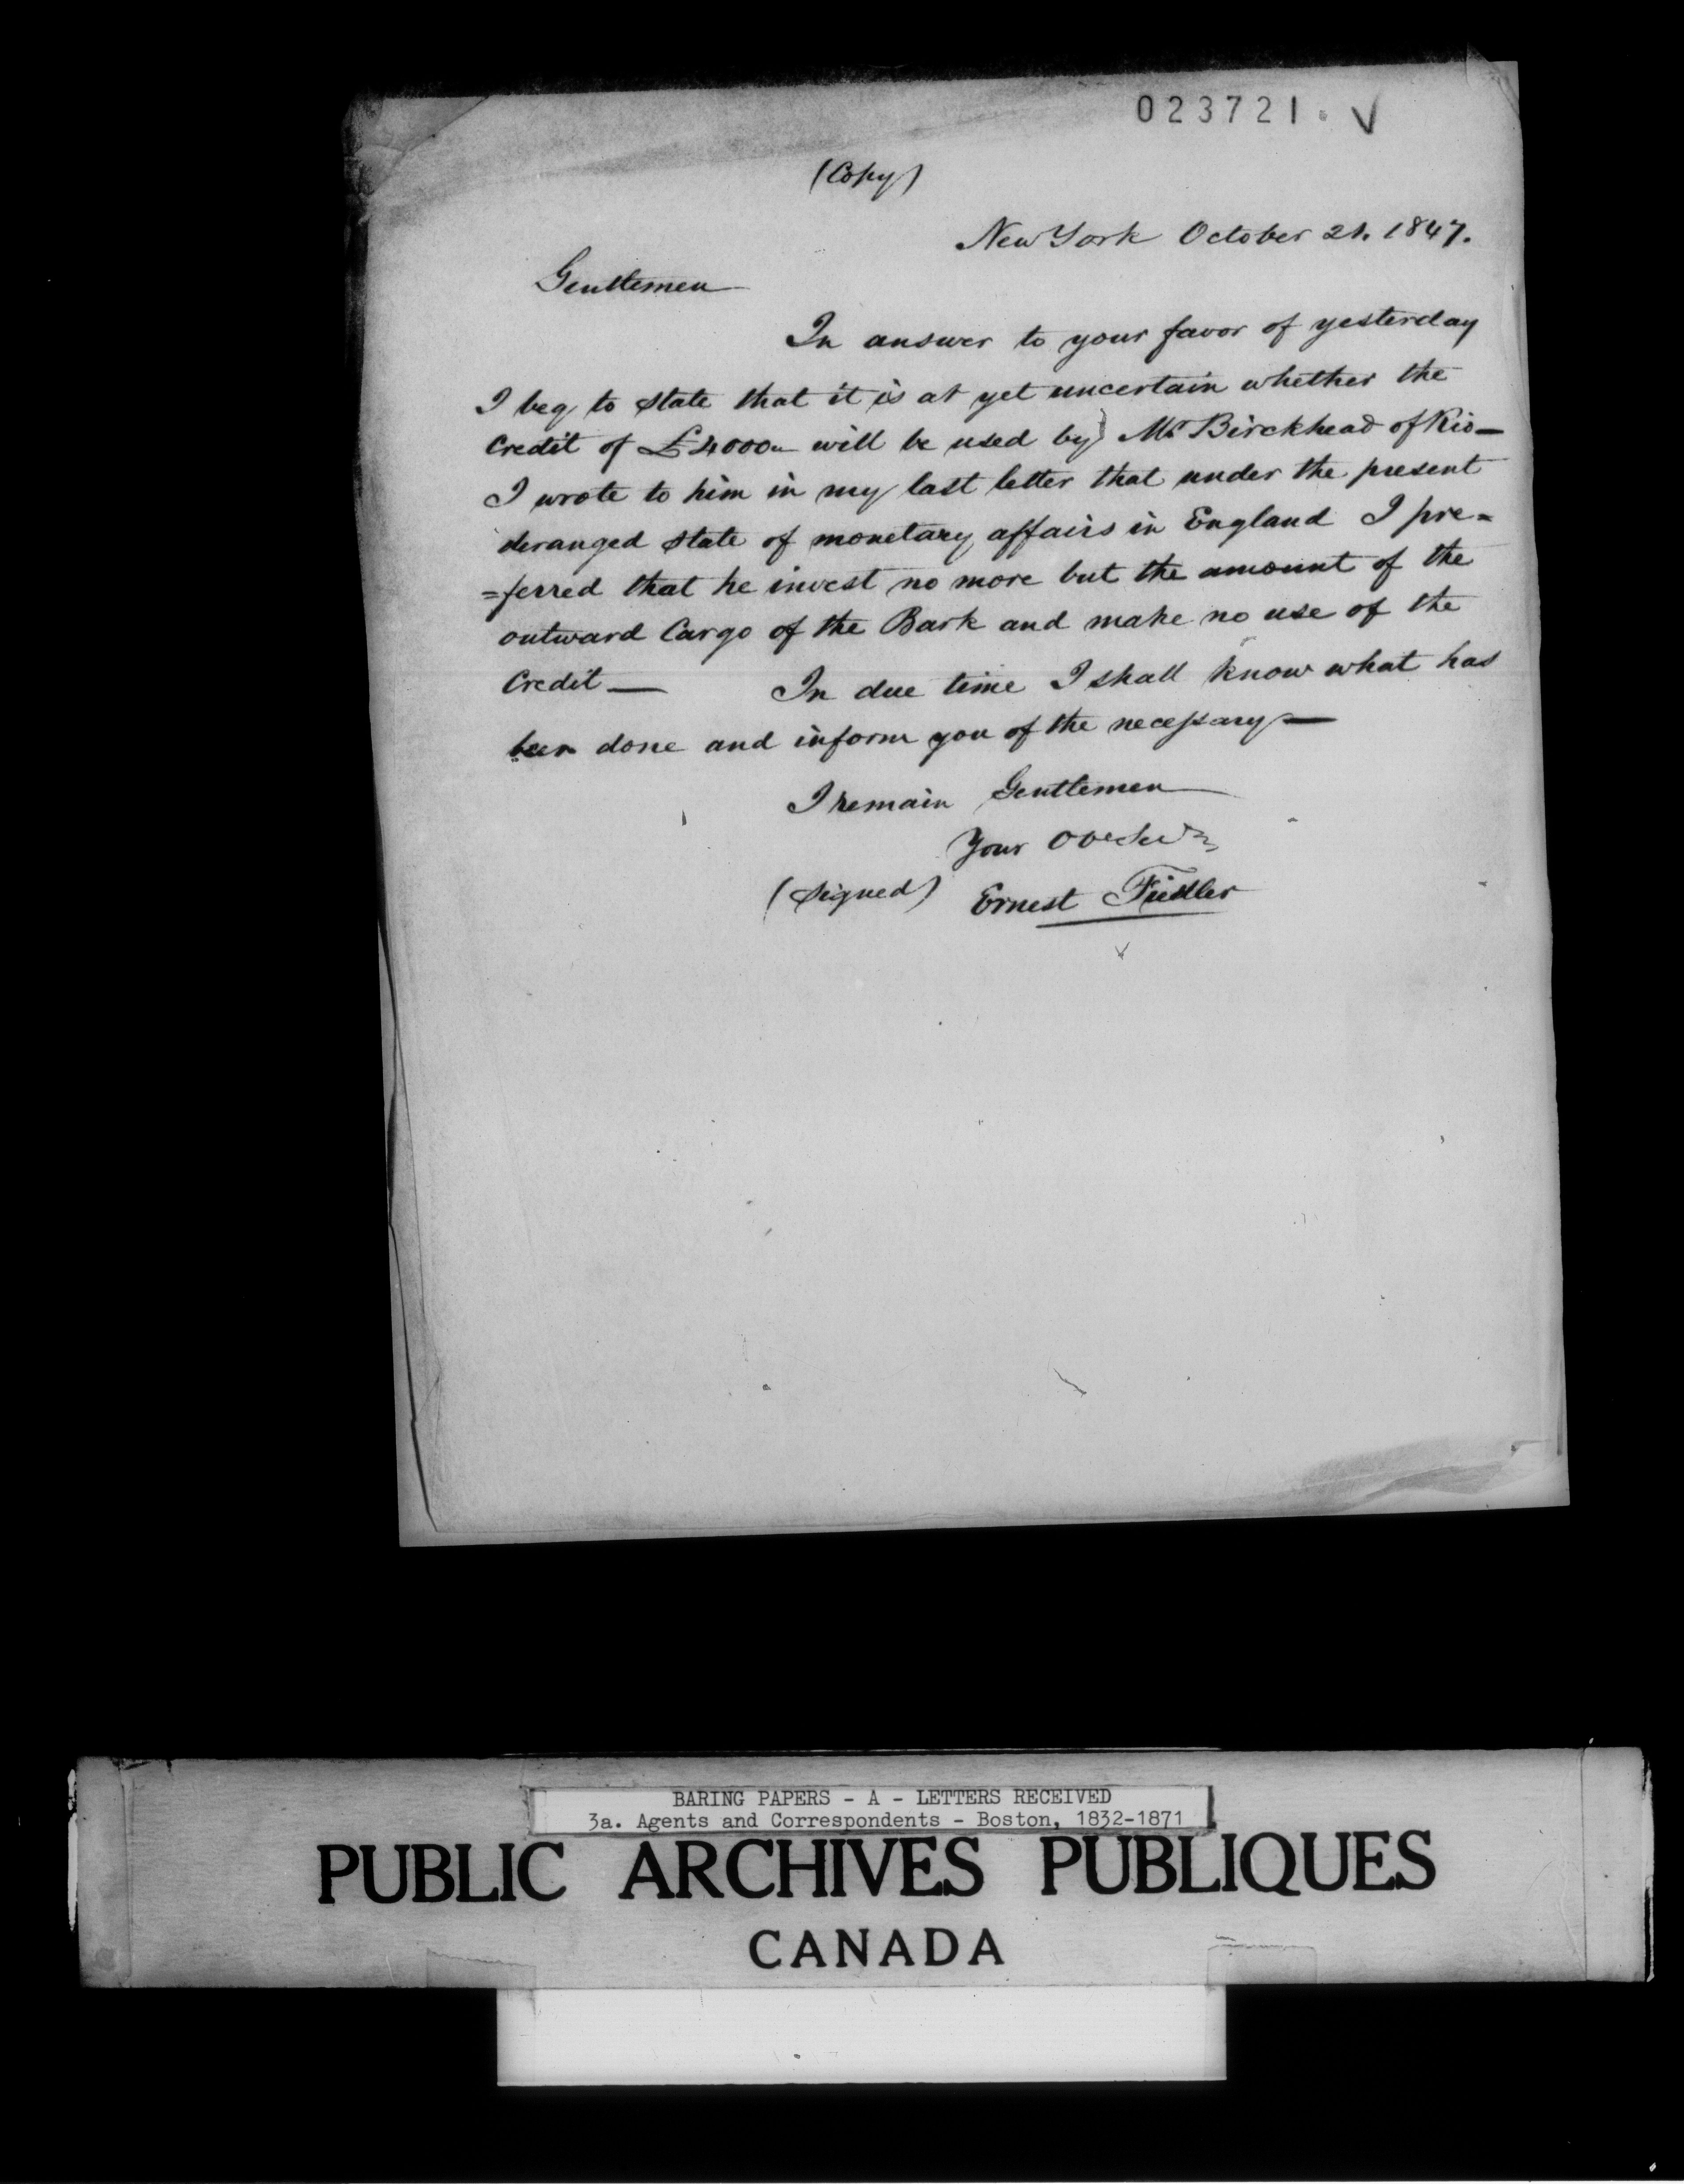 023721.
(Copy)
New York October 21. 1847.
Gentlemen
In answer to your favor of yesterday
I beg to state that it is at yet uncertain whether the
Credit of £4000 will be used by Mr Birckhead of Rio—
I wrote to him in my last letter that under the present
deranged state of monetary affairs in England I pre=
=ferred that he invest no more but the amount of the
outward Cargo of the Bark and make no use of the
Credit — In due time I shall know what has
been done and inform you of the necessary —
I remain Gentlemen
Your
(Signed) Ernest Fiedler
BARING PAPERS - A - LETTERS RECEIVED
3a. Agents and Correspondents - Boston, 1832-1871
PUBLIC ARCHIVES PUBLIQUES
CANADA